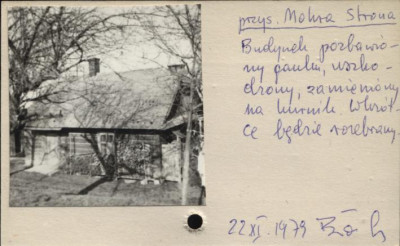 przys. Mokra Strona
Budynek pozbawio-
ny ganku, uszko-
dzony, zamieniony
na kurnik. Wkrót-
ce będzie rozebrany.
22 XI. 1979